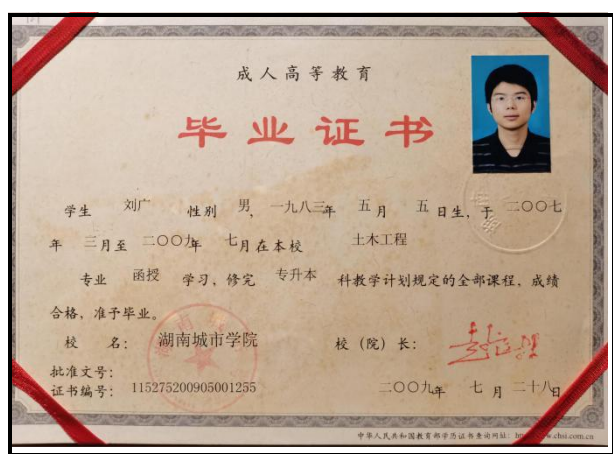 成人高等教育
毕业证书
学生 刘广 性别 男, 一九八三年 五月 五日生, 于 二〇〇七
年 三月至 二〇〇九年 七月在本校 土木工程
专业 函授 学习, 修完 专升本 科教学计划规定的全部课程, 成绩
合格, 准予毕业。
校 名: 湖南城市学院 校 (院) 长:
批准文号:
证书编号: 115275200905001255 二〇〇九年 七月 二十八日
中华人民共和国教育部学历证书查询网址: http://www.chsi.com.cn